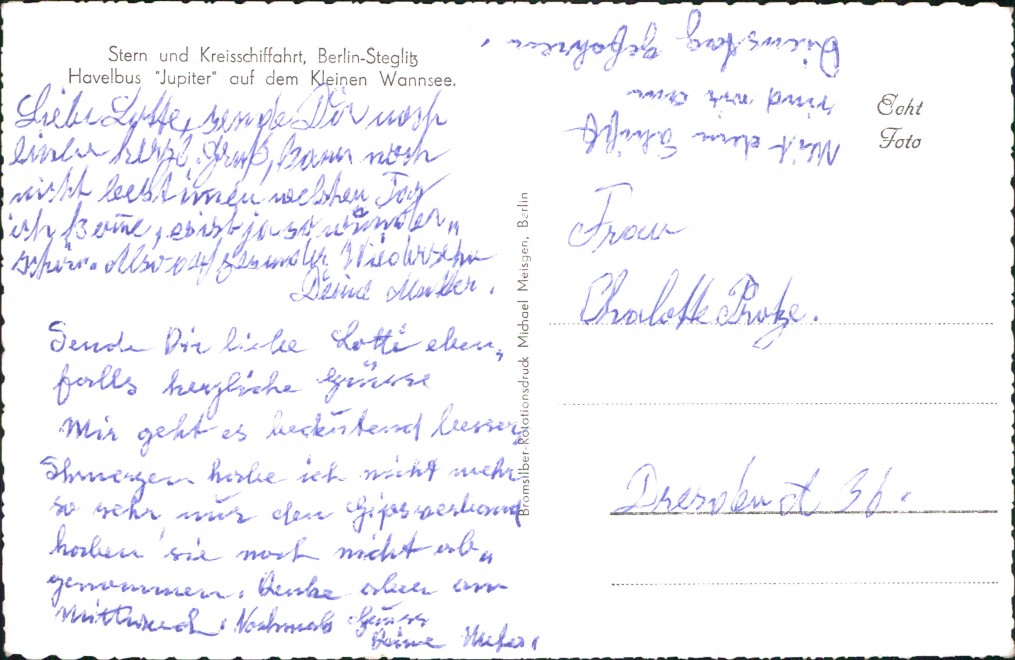 Stern und Kreisschiffahrt, Berlin-Steglitz
Havelbus "Jupiter" auf dem Kleinen Wannsee.
Liebe Lotte, sende Dir noch
herzl. Gruß, kann noch
nicht bestimen welchen Tag
ich kome, es ist ja so wunder„
schön. Also auf Wiedersehn
Deine Mutter.
Sende Dir liebe Lotte eben„
falls herzliche Grüsse
Mir geht es bedeutend besser,
Shmerzen habe ich nicht mehr
so sehr nur den Gipsverband
haben sie noch nicht ab„
genommen. Denke aber am
Mittwoch. Nochmals Grüsse
Deine
Mit dem Schiff
sind wir am
Dienstag gefahren.
Echt
Foto
Frau
Chalotte Protze.
Dresden A 36.
Bromsilber-Rotationsdruck Michael Meisgen, Berlin